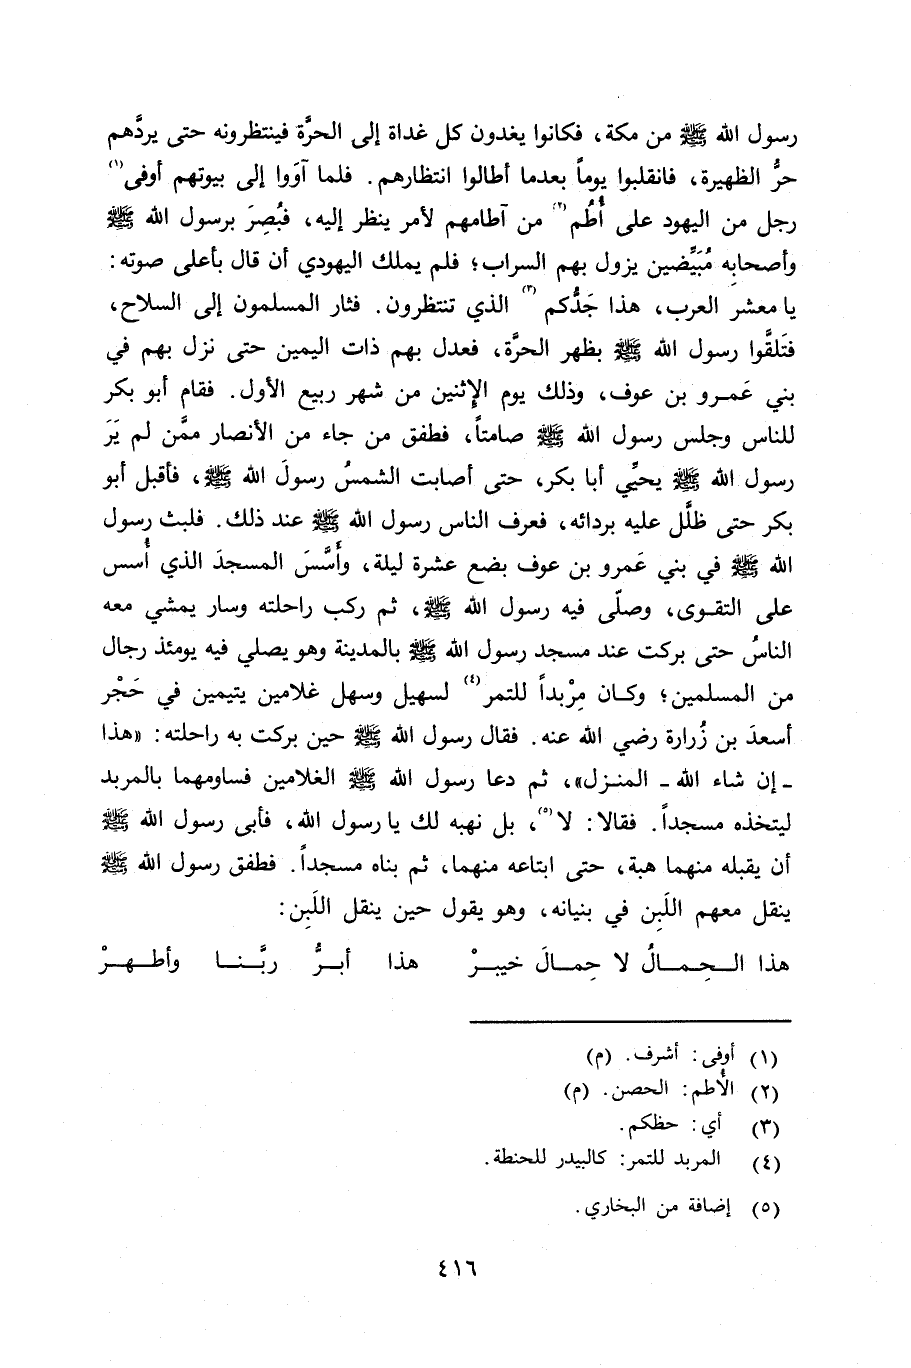 رسول الله ﷺ من مكة، فكانوا يغدون كل غداة إلى الحرَّة فينتظرونه حتى يردَّهم
حرُّ الظهيرة، فانقلبوا يوماً بعدما أطالوا انتظارهم. فلما آوَوا إلى بيوتهم أوفى(١)
رجل من اليهود على أُطُم(٢) من آطامهم لأمر ينظر إليه، فبُصِرَ برسول الله ﷺ
وأصحابِه مُبَيِّضين يزول بهم السراب؛ فلم يملك اليهودي أن قال بأعلى صوته:
يا معشر العرب، هذا جَدُّكم(٣) الذي تنتظرون. فثار المسلمون إلى السلاح،
فتَلقَّوا رسول الله ﷺ بظهر الحرَّة، فعدل بهم ذات اليمين حتى نزل بهم في
بني عَمـرو بن عوف، وذلك يوم الإثنين من شهر ربيع الأول. فقام أبو بكر
للناس وجلس رسول الله ﷺ صامتاً، فطفق من جاء من الأنصار ممَّن لم يَرَ
رسول الله ﷺ يحيِّي أبا بكر، حتى أصابت الشمسُ رسولَ الله ﷺ، فأقبل أبو
بكر حتى ظلَّل عليه بردائه، فعرف الناس رسول الله ﷺ عند ذلك. فلبث رسول
الله ﷺ في بني عَمرو بن عوف بضع عشرة ليلة، وأَسَّسَ المسجدَ الذي أُسس
على التقـوى، وصلّى فيه رسول الله ﷺ، ثم ركب راحلته وسار يمشي معه
الناسُ حتى بركت عند مسجد رسول الله ﷺ بالمدينة وهو يصلي فيه يومئذ رجال
من المسلمين؛ وكـان مِرْبداً للتمر(٤) لسهيل وسهل غلامين يتيمين في حَجْر
أسعدَ بن زُرارة رضي الله عنه. فقال رسول الله ﷺ حين بركت به راحلته: «هذا
ـ إن شاء الله ـ المنـزل»، ثم دعا رسول الله ﷺ الغلامين فساومهما بالمربد
ليتخذه مسجداً. فقالا: لا(٥)، بل نهبه لك يا رسول الله، فأبى رسول الله ﷺ
أن يقبله منهما هبة، حتى ابتاعه منهما، ثم بناه مسجداً. فطفق رسول الله ﷺ
ينقل معهم اللَبِن في بنيانه، وهو يقول حين ينقل اللَبِن:
هذا الـحِـمـالُ لا حِمـالَ خيبـرْ    هذا أبـرُّ ربَّـنـا وأطـهـرْ
(١) أوفى: أشرف. (م)
(٢) الأُطم: الحصن. (م)
(٣) أي: حظكم.
(٤) المربد للتمر: كالبيدر للحنطة.
(٥) إضافة من البخاري.
٤١٦